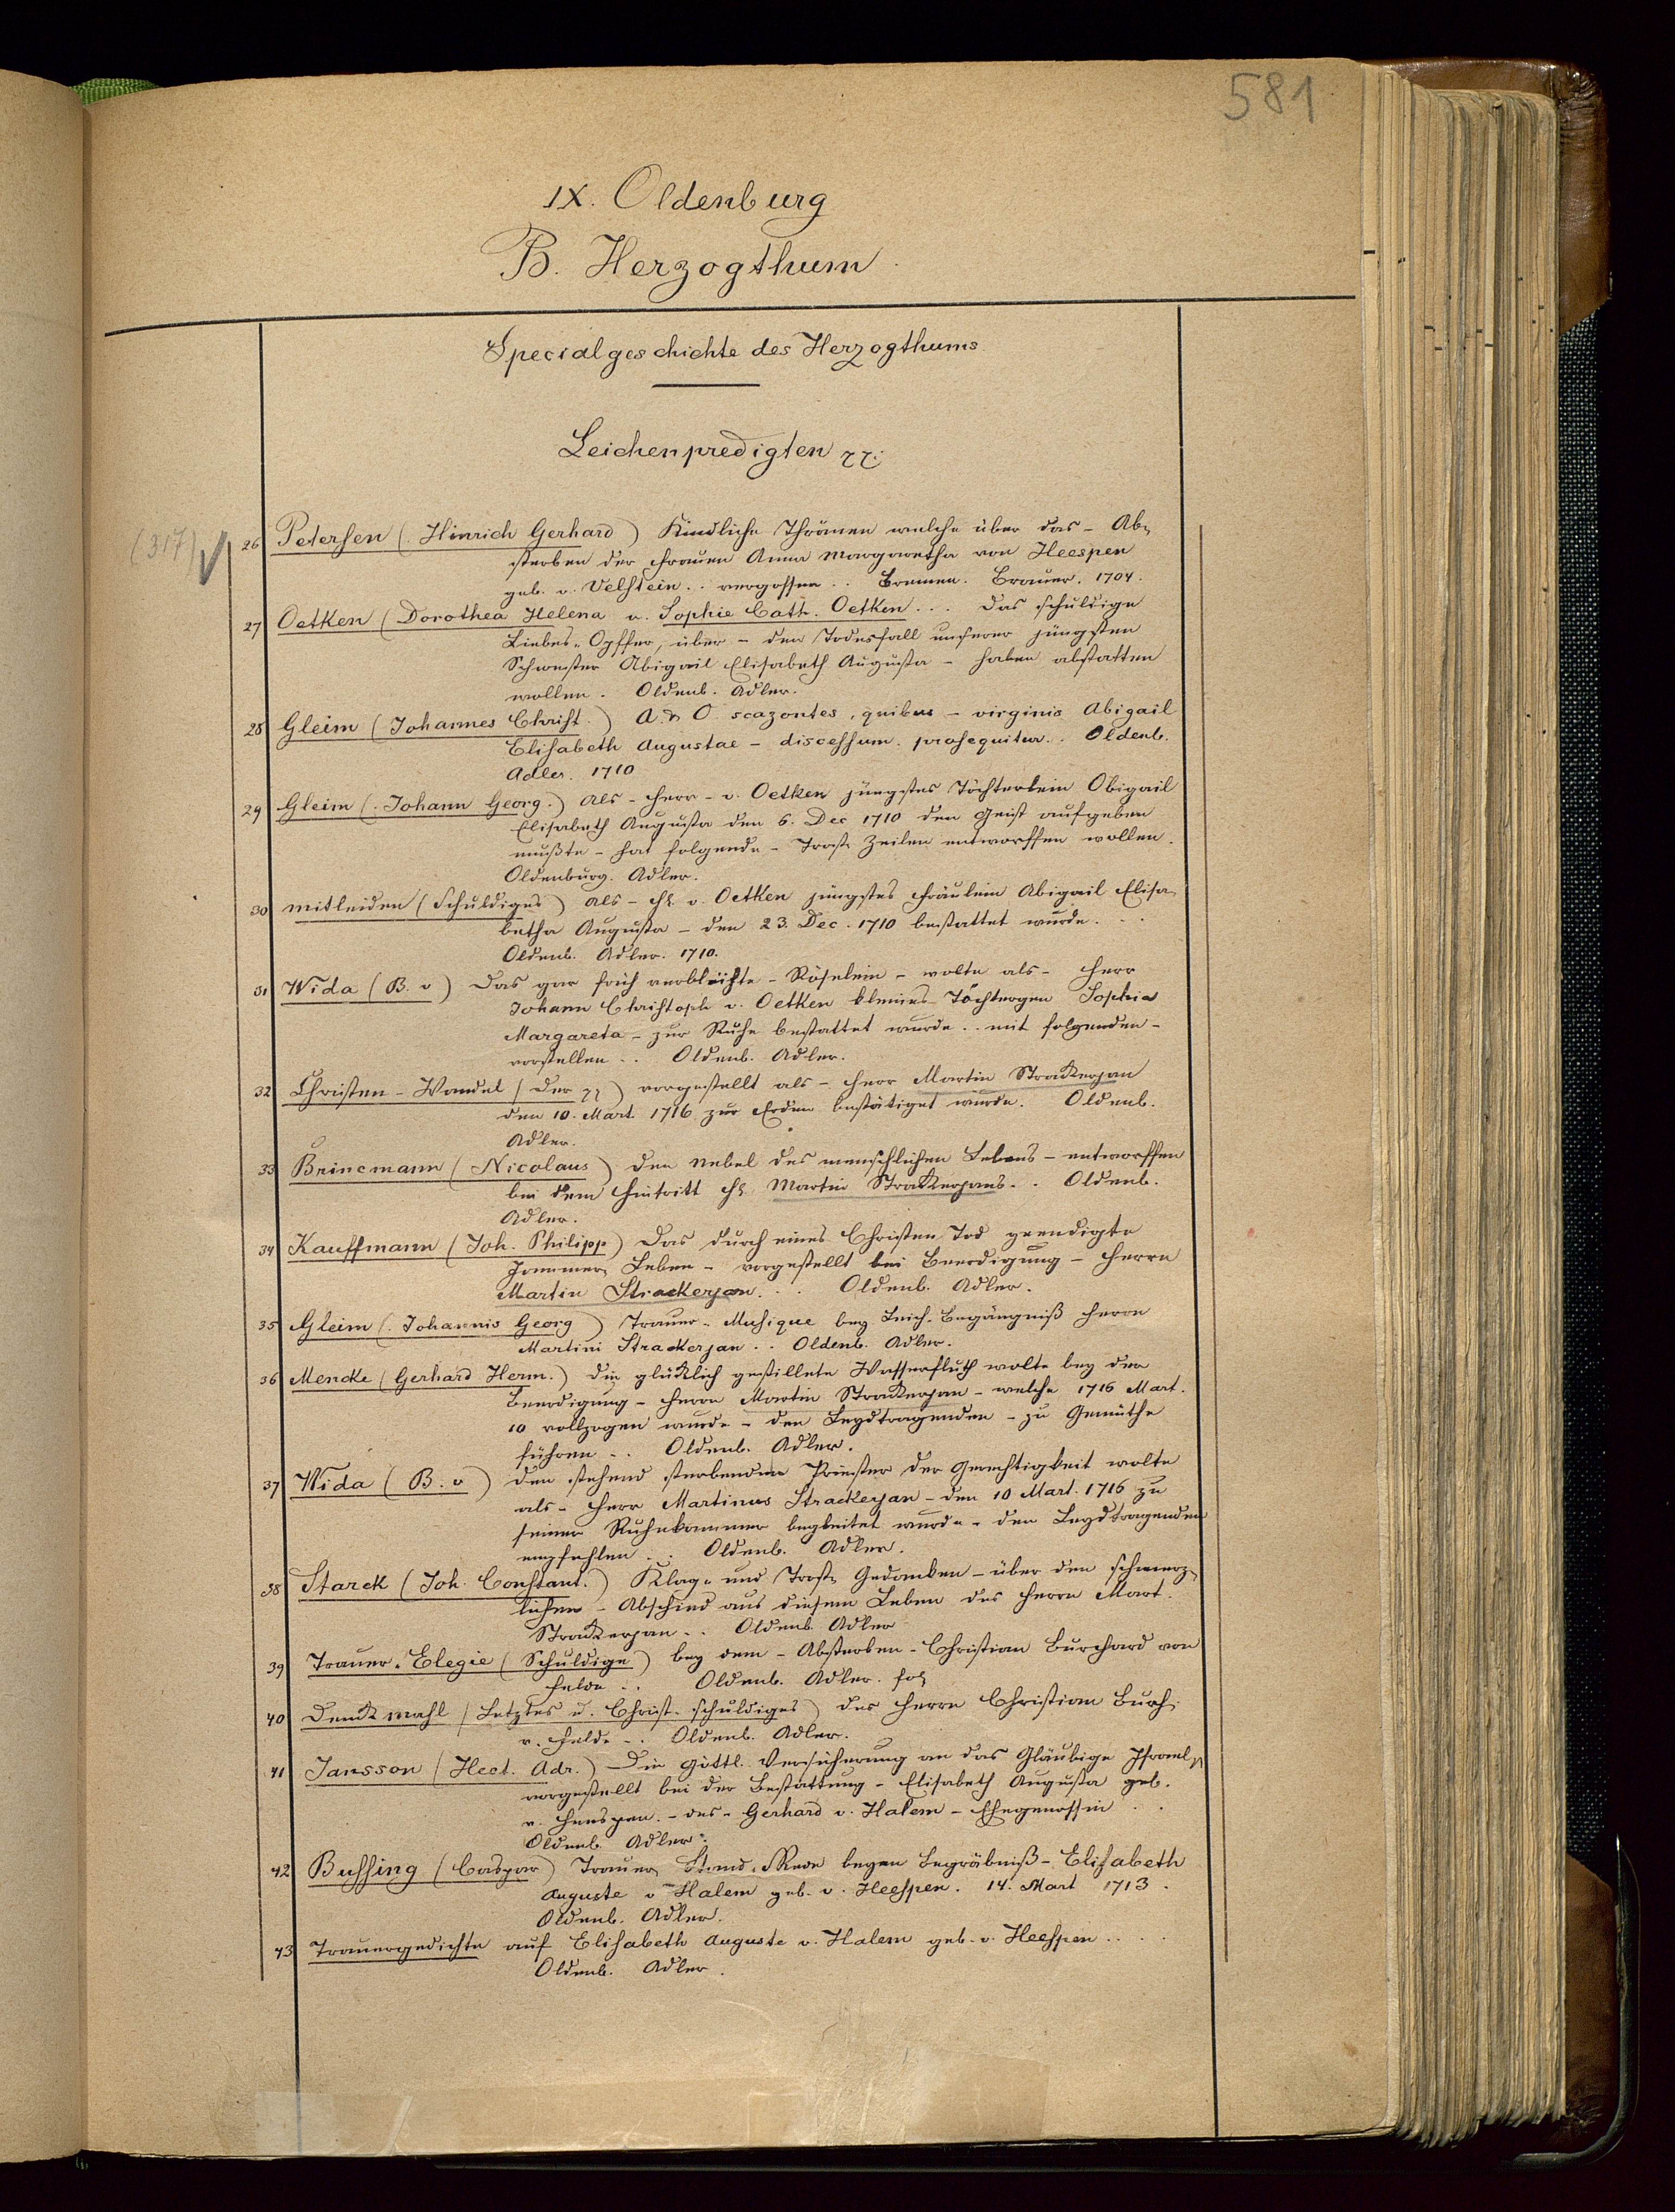 581
IX. Oldenburg
B. Herzogthum
Specialgeschichte des Herzogthums
Leichenpredigten
(317)
26 Petersen (Hinrich Gerhard) Kindliche Thränen welche über das - Ab-
sterben der Frauen Anna Margaretha von Heespen
geb. v. Velstein .. vergossen .. Bremen. Brauer. 1704.
27 Oetken (Dorothea Helena u. Sophie Cath. Oetken ... Das schuldige
Liebes-Opffer, über - den Todesfall unserer jüngsten
Schwester Abigail Elisabeth Augusta - haben abstatten
wollen. Oldenb. Adler.
28 Gleim (Johannes Christ.) A & O scazontes, quibus - virginis Abigail
Elisabeth Augustae - discessum prosequitur .. Oldenb.
Adler. 1710
29 Gleim (Johann Georg.) Als - Herr - v. Oetken jüngstes Töchterlein Abigail
Elisabeth Augusta den 6. Dec 1710 den Geist aufgeben
mußte - hat folgende - Trost Zeilen entworffen wollen.
Oldenburg. Adler.
30 Mitleiden (Schuldiges) als - H. v. Oetken jüngstes Fräulein Abigail Elisa-
betha Augusta - den 23. Dec. 1710 bestattet wurde. ..
Oldenb. Adler. 1710.
31 Wida (B. v) Das gar früh verbleichte - Röselein - wolte als - Herr
Johann Christoph v. Oetken kleines Töchtergen Sophia
Margareta - zur Ruhe bestattet wurde .. mit folgenden -
vorstellen .. Oldenb. Adler.
32 Christen-Wandel (Der) vorgestellt als - Herr Martin Strackerjan
den 10. Mart. 1716 zur Erden bestätiget wurde. Oldenb.
Adler.
33 Brincmann (Nicolaus) Den Nebel des menschlichen Lebens - entworffen
bei dem Hintritt H. Martin Strackerjans .. Oldenb.
Adler.
34 Kauffmann (Joh. Philipp) Das durch eines Christen Tod geendigte
Jammer-Leben - vorgestellt bei Beerdigung - Herrn
Martin Strackerjan. .. Oldenb. Adler.
35 Gleim (Johannis Georg) Trauer-Musique bey Leich-Begängniß Herrn
Martini Strackerjan .. Oldenb. Adler.
36 Mencke (Gerhard Herm.) Die glücklich gestillete Wasserfluth wolte bey der
Beerdigung - Herrn Martin Strackerjan - welche 1716 Mart.
10 vollzogen wurde - den Leydtragenden - zu Gemüthe
führen .. Oldenb. Adler.
37 Wida (B. v) Den stehend sterbenden Priester der Gerechtigkeit wolte
als - Herr Martinus Strackerjan - den 10 Mart. 1716 zu
seiner Ruhekammer begleitet wurde - den Leydtragenden
empfehlen .. Oldenb. Adler.
38 Starck (Joh. Constant.) Klag- und Trost-Gedanken - über den schmerz-
lichen - Abschied aus diesem Leben des Herrn Mart.
Strackerjan .. Oldenb. Adler
39 Trauer-Elegie (Schuldige) bey dem - Absterben - Christian Burchard von
Felde .. Oldenb. Adler. fol
40 Denckmahl (Letztes u. Christ-schuldiges) des Herrn Christian Burch.
v. Felde .. Oldenb. Adler.
41 Jansson (Hect. Adr.) Die Göttl. Versicherung an das Gläubige Israel
vorgestellt bei der Bestattung - Elisabeth Augusta geb.
v. Heespen - des - Gerhard v. Halem - Ehegenossin ..
Oldenb. Adler.
42 Bussing (Caspar) Trauer Stand-Rede Begräbniß - Elisabeth
Auguste v Halem geb. v. Heespen. 14. Mart 1713.
Oldenb. Adler.
43 Trauergedichte auf Elisabeth Auguste v. Halem geb. v. Heespen ....
Oldenb. Adler.